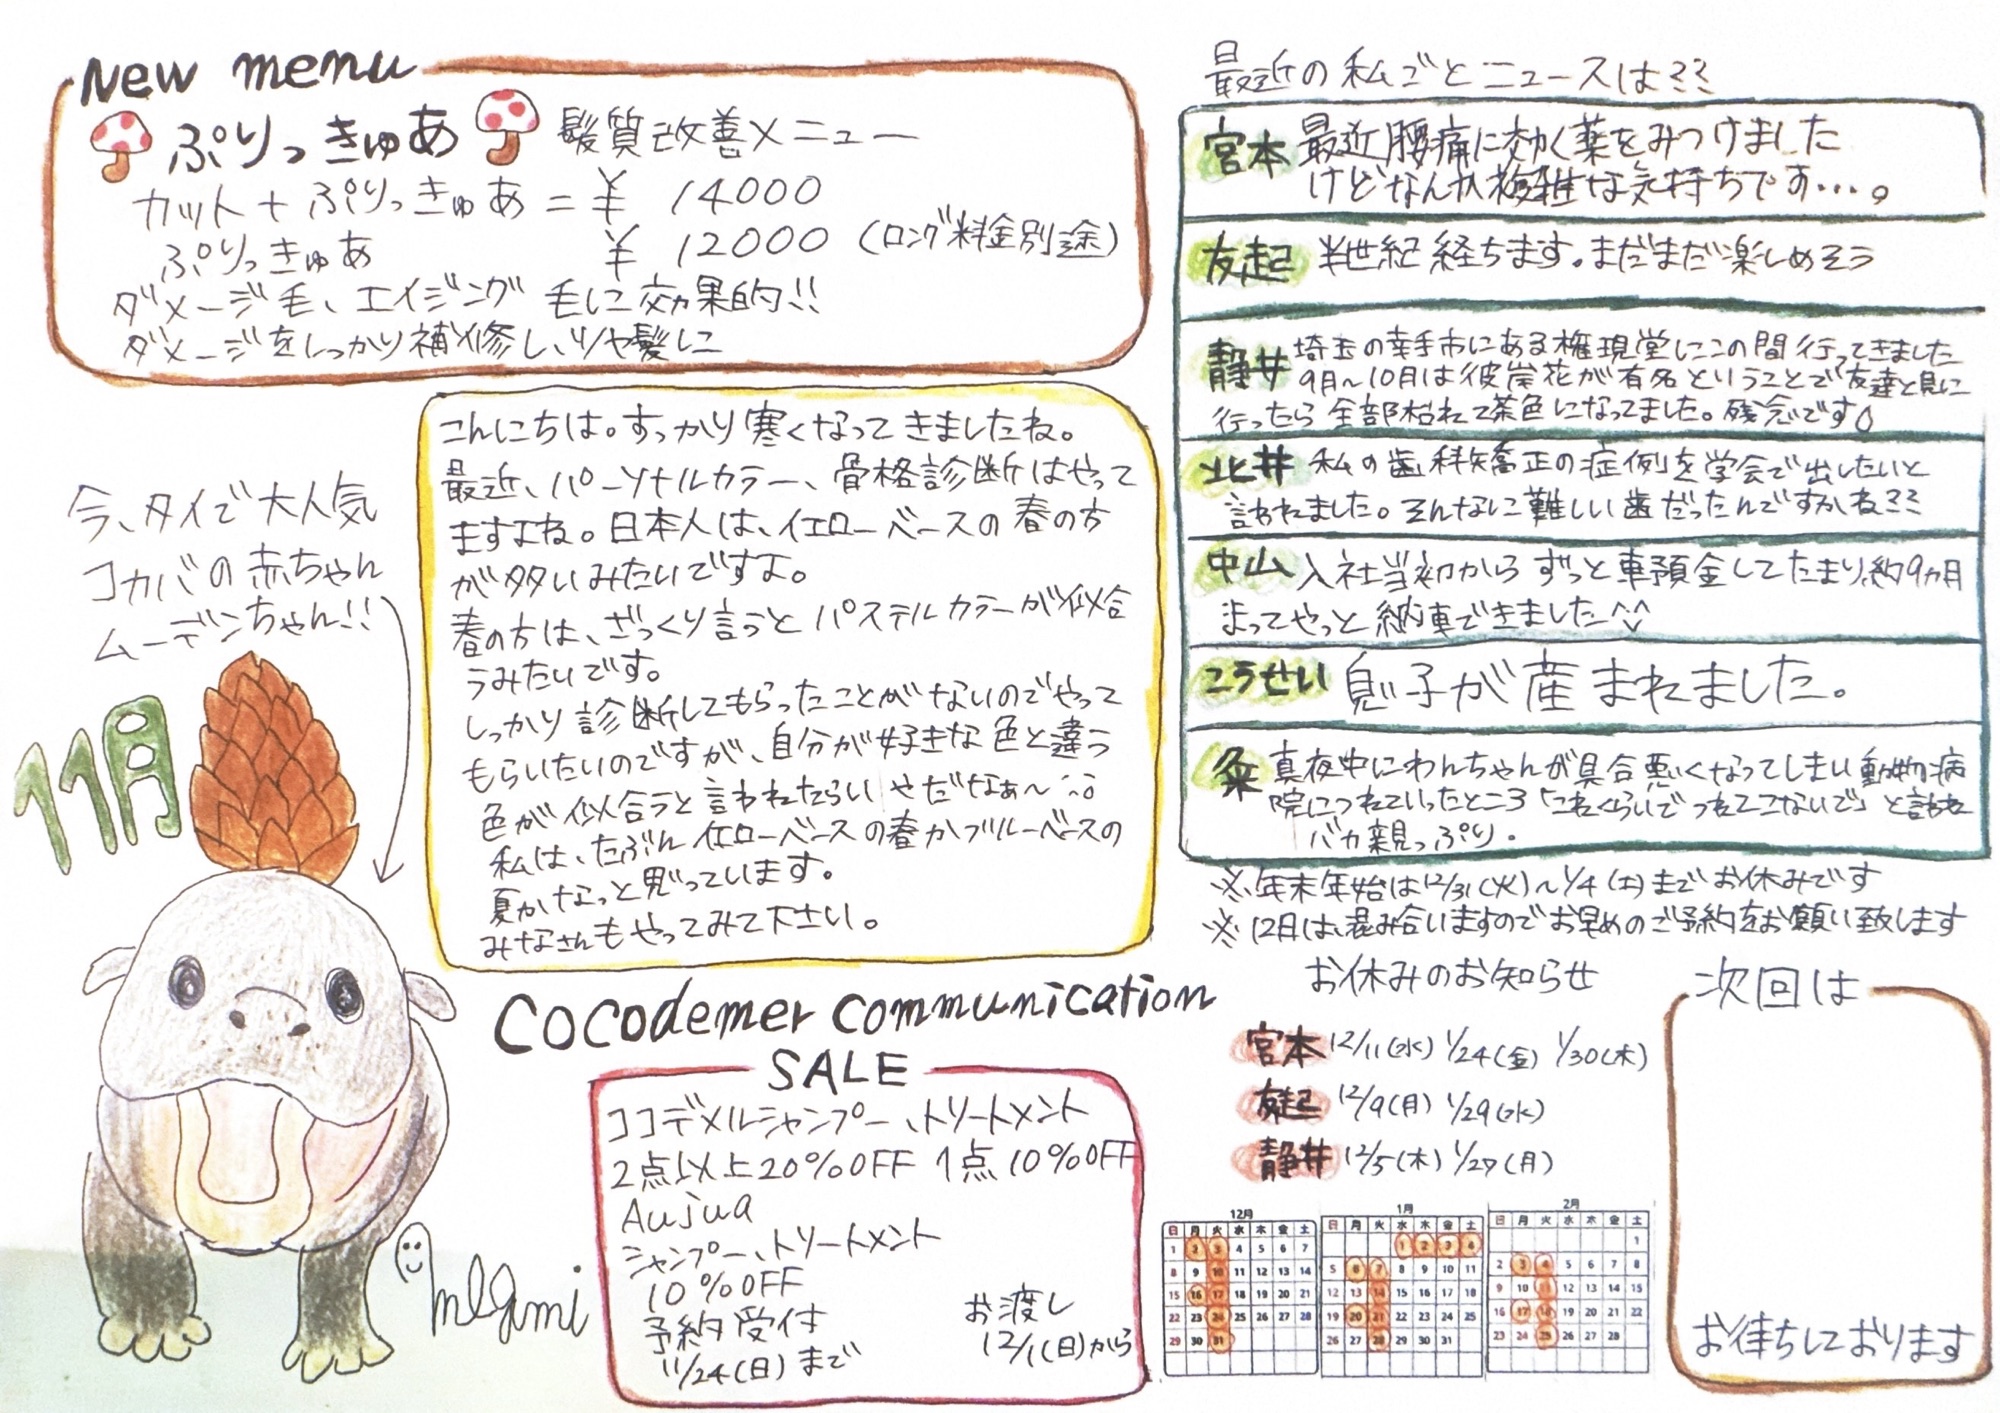 New menu
ぷりっきゅあ 髪質改善メニュー
カット + ぷりっきゅあ = ¥ 14000
ぷりっきゅあ ¥ 12000 (ロング料金別途)
ダメージ毛、エイジング毛に効果的!!
ダメージをしっかり補修し、ツヤ髪に
こんにちは。すっかり寒くなってきましたね。
最近、パーソナルカラー、骨格診断はやって
ますよね。日本人は、イエローベースの春の方
が多いみたいですよ。
春の方は、ざっくり言うとパステルカラーが似合
うみたいです。
しっかり診断してもらったことがないのでやって
もらいたいのですが、自分が好きな色と違う
色が似合うと言われたらいやだなぁ〜
私は、たぶんイエローベースの春かブルーベースの
夏かなっと思っています。
みなさんもやってみて下さい。
今、タイで大人気
コカバの赤ちゃん
ムーデンちゃん!!
11月
megumi
Cocodemer communication
SALE
ココデメルシャンプー、トリートメント
2点以上20%OFF 1点10%OFF
Aujua
シャンプー、トリートメント
10%OFF
予約受付
11/24(日)まで
お渡し
12/1(日)から
最近の私ごとニュースは??
宮本 最近腰痛に効く薬をみつけました
けどなんか複雑な気持ちです…。
友起 半世紀経ちます。まだまだ楽しめそう
静井 埼玉の幸手市にある権現堂にこの間行ってきました
9月〜10月は彼岸花が有名ということで友達と見に
行ったら全部枯れて茶色になってました。残念です
北井 私の歯科矯正の症例を学会で出したいと
言われました。そんなに難しい歯だったんですかね??
中山 入社当初からずっと車預金してたまり、約9ヵ月
まってやっと納車できました^^
こうせい 息子が産まれました。
粂 真夜中にわんちゃんが具合悪くなってしまい動物病
院につれていったところ「これくらいでつれてこないで」と言われ
バカ親っぷり.
※年末年始は12/31(火)〜1/4(土)までお休みです
※12月は、混み合いますのでお早めのご予約をお願い致します
お休みのお知らせ
宮本 12/11(水) 1/24(金) 1/30(木)
友起 12/9(月) 1/29(水)
静井 12/5(木) 1/27(月)
12月
日 月 火 水 木 金 土
1 2 3 4 5 6 7
8 9 10 11 12 13 14
15 16 17 18 19 20 21
22 23 24 25 26 27 28
29 30 31
1月
日 月 火 水 木 金 土
1 2 3 4
5 6 7 8 9 10 11
12 13 14 15 16 17 18
19 20 21 22 23 24 25
26 27 28 29 30 31
2月
日 月 火 水 木 金 土
1
2 3 4 5 6 7 8
9 10 11 12 13 14 15
16 17 18 19 20 21 22
23 24 25 26 27 28
次回は
お待ちしております